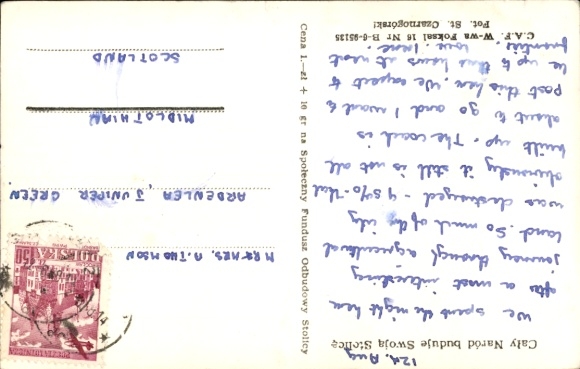 Cały Naród buduje Swoją Stolicę
12th Aug
We spent the night here
after a most interesting
journey through agricultural
land. So much of the city
was destroyed - 4 5% - that
obviously it still is not all
built up. The coach is
about to go and I want to
post this here. We expect to
be up to two hours at next
frontier. Love, Irene.
C.A.F. W-wa Foksal 16 Nr B-6-95135
Fot. St. Czarnogórski
Cena 1.—zł + 16 gr na Społeczny Fundusz Odbudowy Stolicy
MR & MRS. A. THOMSON
ARDENLEA, JUNIPER GREEN
MIDLOTHIAN
SCOTLAND
150
POLSKA